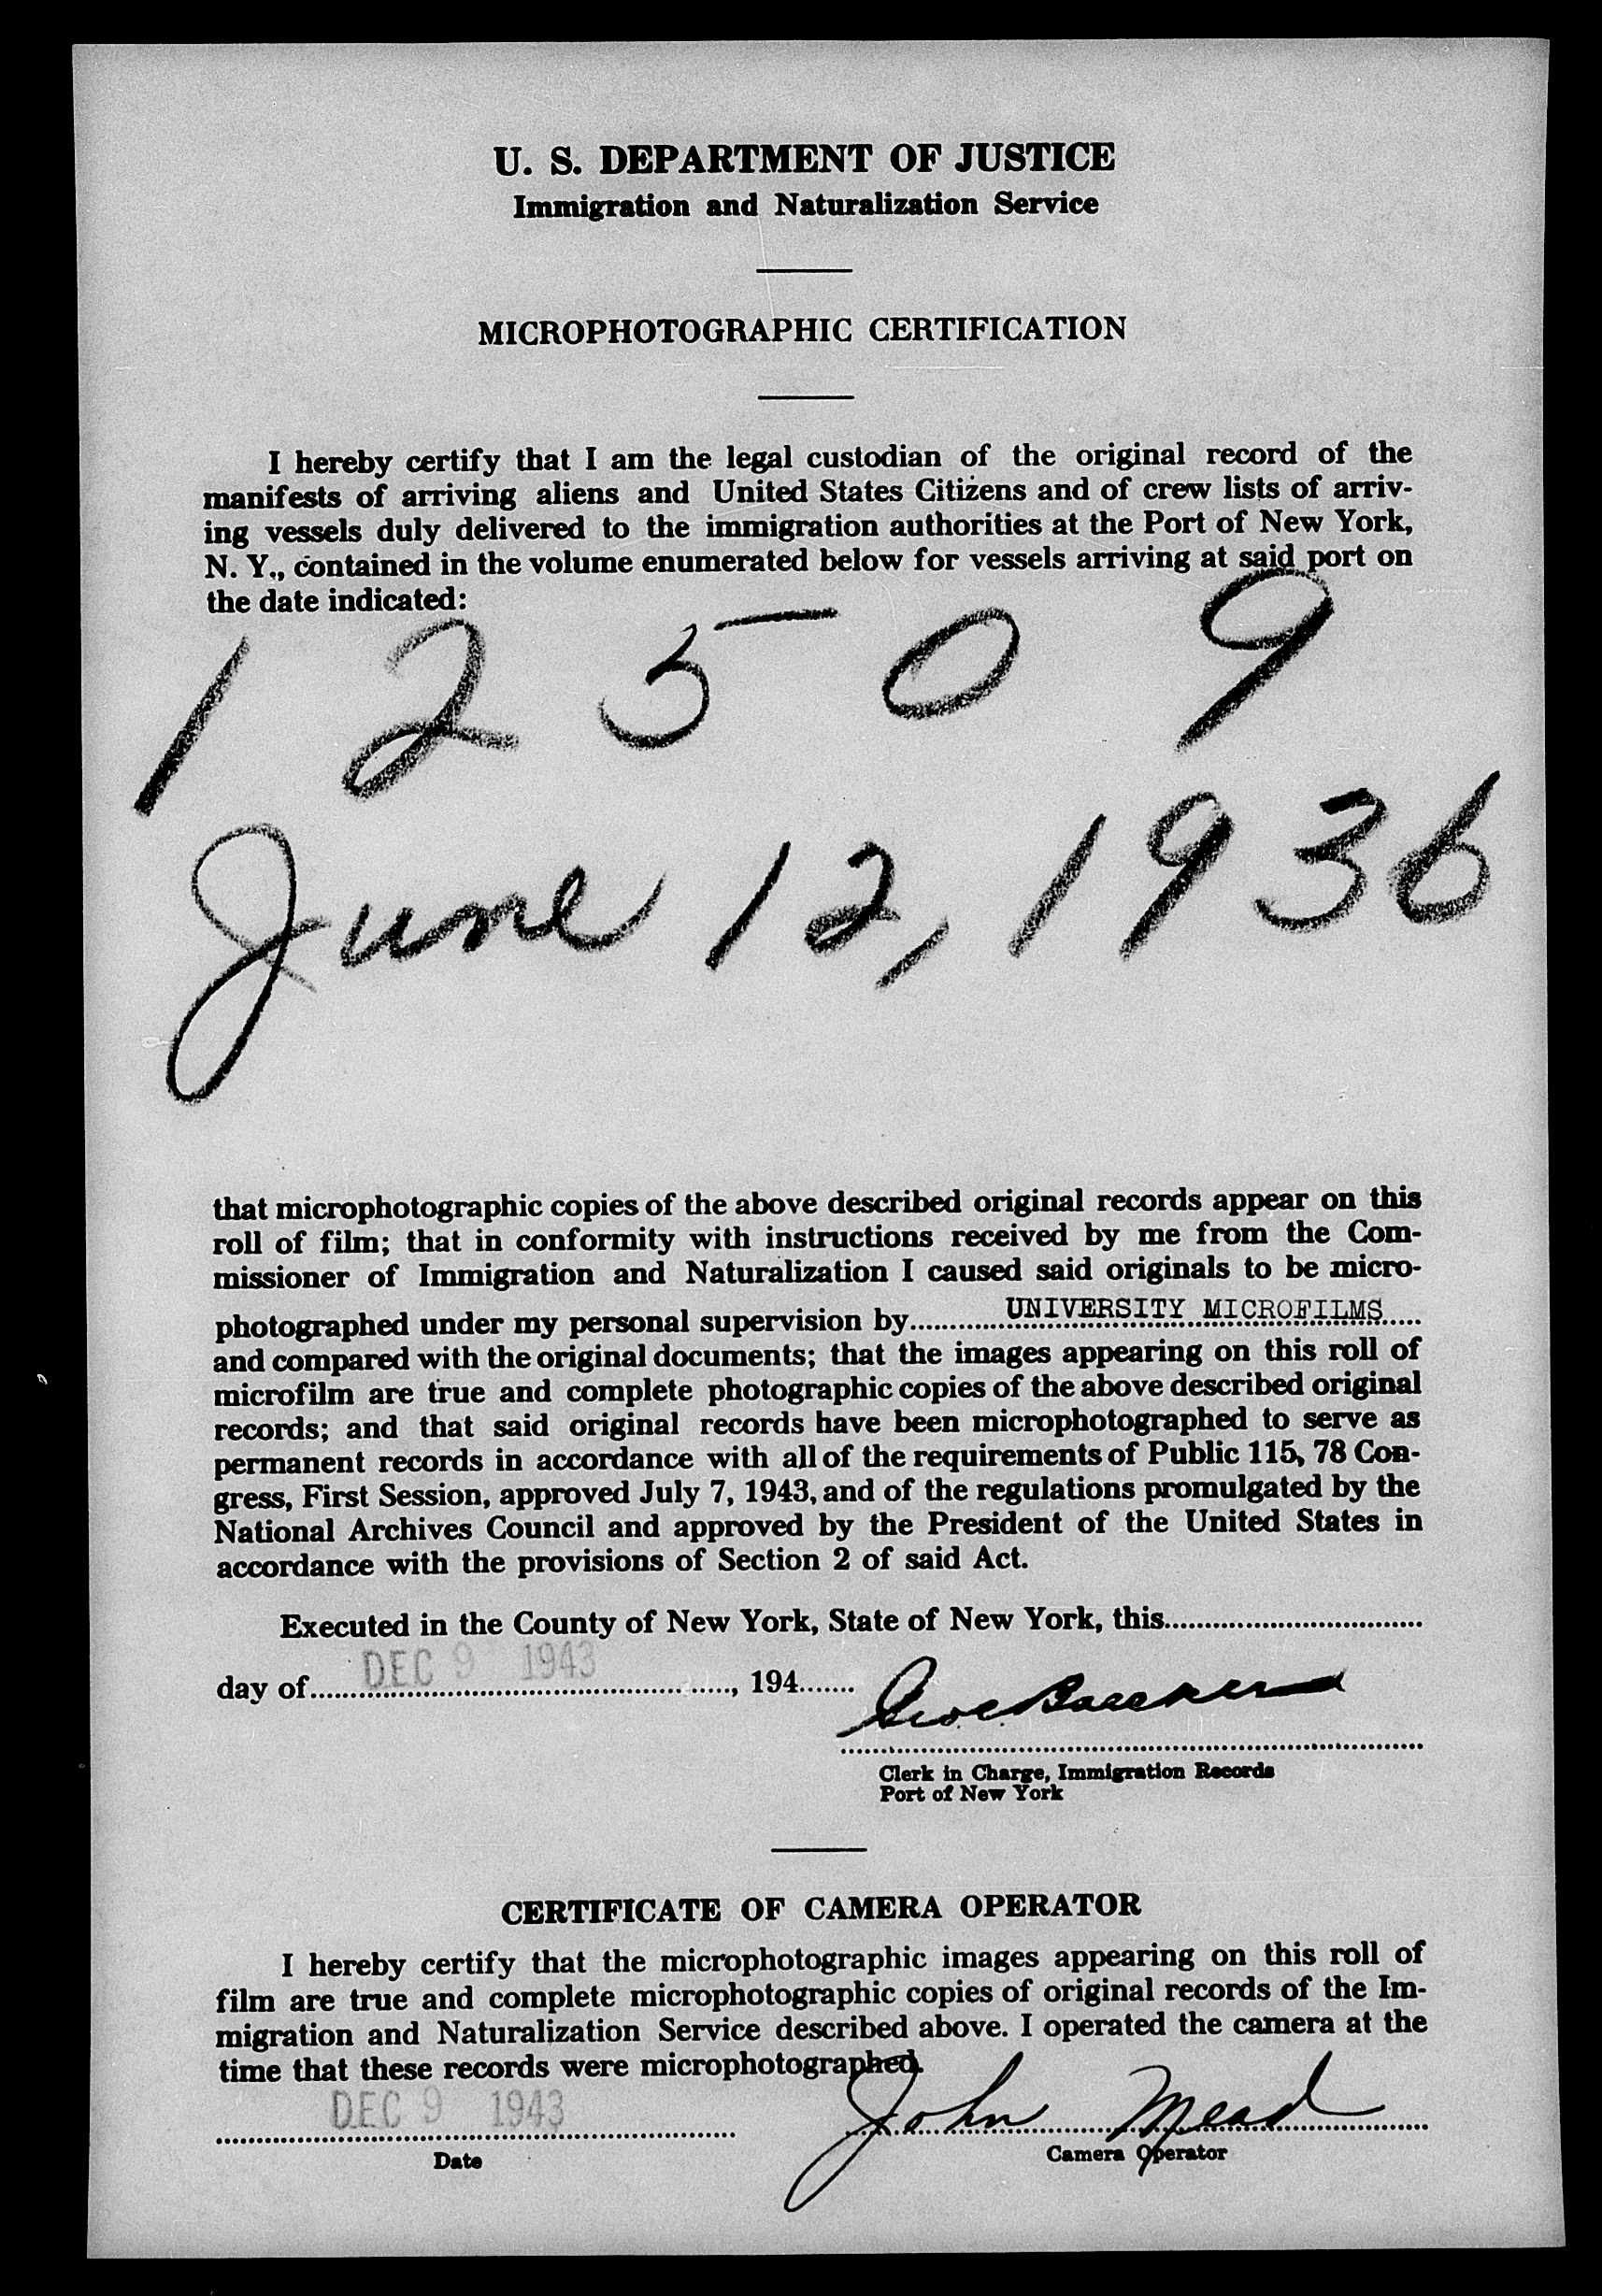 U. S. DEPARTMENT OF JUSTICE
Immigration and Naturalization Service
MICROPHOTOGRAPHIC CERTIFICATION
I hereby certify that I am the legal custodian of the original record of the
manifests of arriving aliens and United States Citizens and of crew lists of arriv-
ing vessels duly delivered to the immigration authorities at the Port of New York,
N. Y., contained in the volume enumerated below for vessels arriving at said port on
the date indicated:
12509
June 12, 1936
that microphotographic copies of the above described original records appear on this
roll of film; that in conformity with instructions received by me from the Com-
missioner of Immigration and Naturalization I caused said originals to be micro-
photographed under my personal supervision by UNIVERSITY MICROFILMS
and compared with the original documents; that the images appearing on this roll of
microfilm are true and complete photographic copies of the above described original
records; and that said original records have been microphotographed to serve as
permanent records in accordance with all of the requirements of Public 115, 78 Con-
gress, First Session, approved July 7, 1943, and of the regulations promulgated by the
National Archives Council and approved by the President of the United States in
accordance with the provisions of Section 2 of said Act.
Executed in the County of New York, State of New York, this
day of DEC 9 1943, 194
Clerk in Charge, Immigration Records
Port of New York
CERTIFICATE OF CAMERA OPERATOR
I hereby certify that the microphotographic images appearing on this roll of
film are true and complete microphotographic copies of original records of the Im-
migration and Naturalization Service described above. I operated the camera at the
time that these records were microphotographed.
DEC 9 1943 John Mead
Date Camera Operator